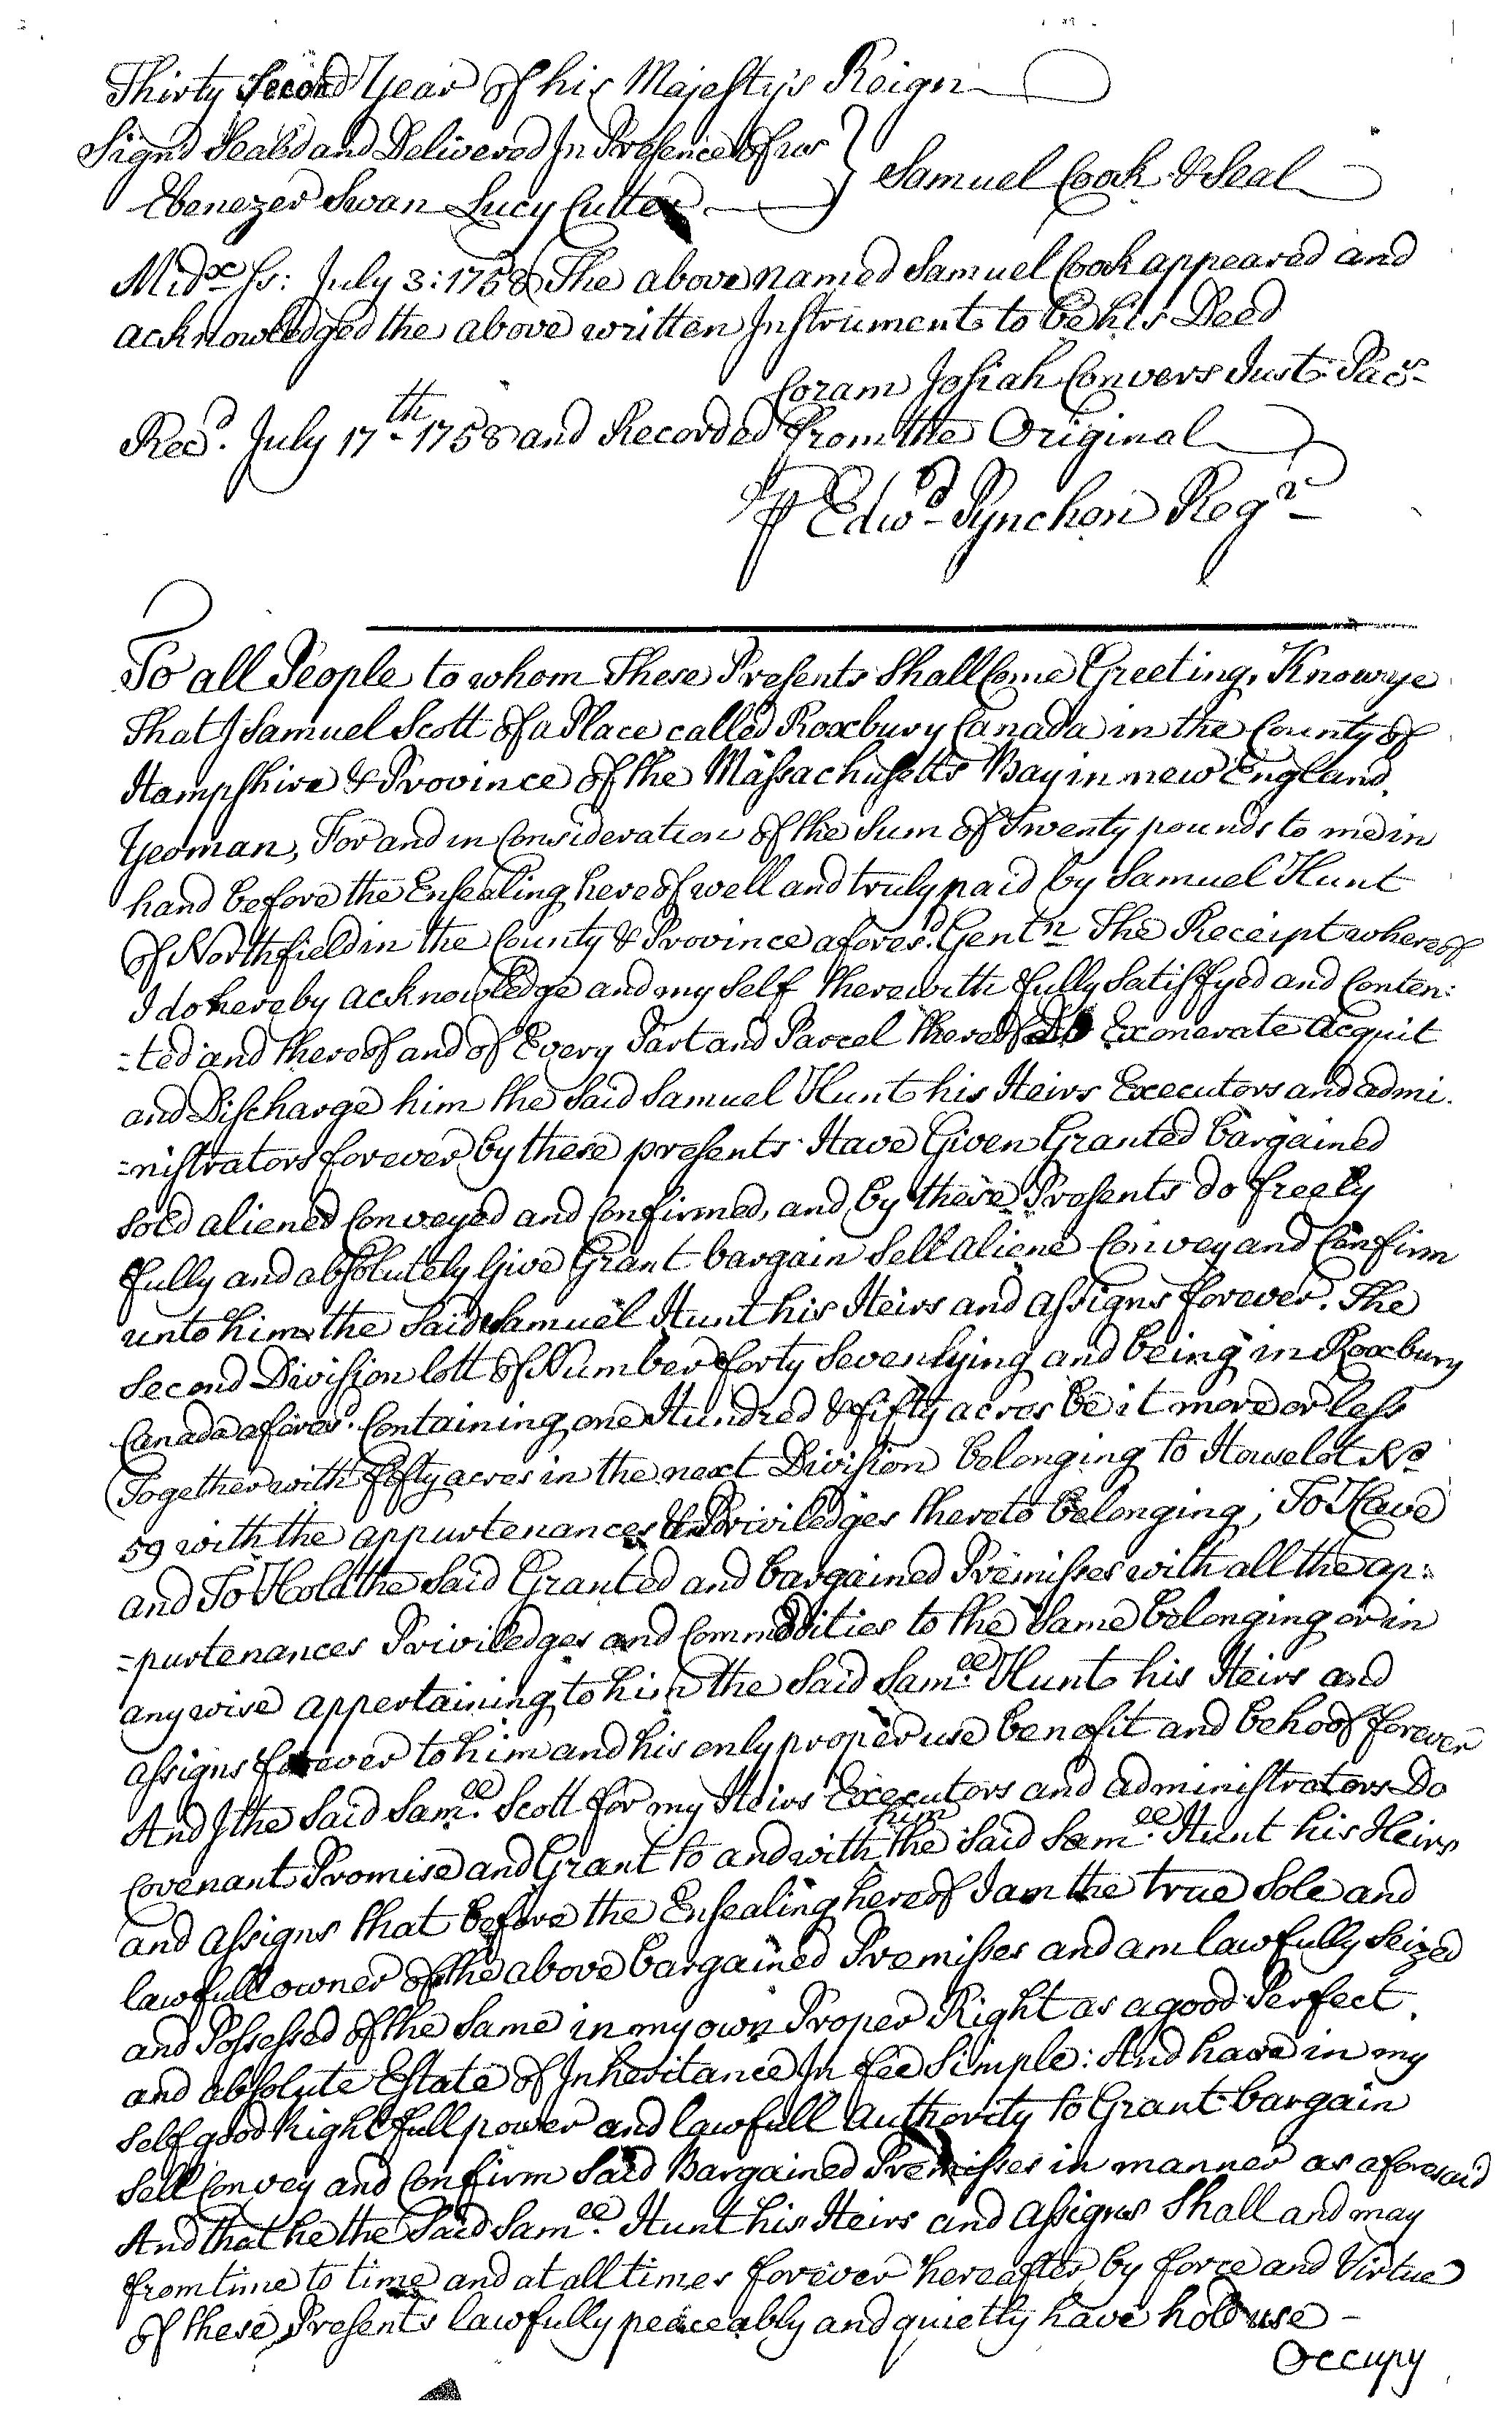 Thirty Second Year of his Majesty's Reign
Signd Seald and Delivered In Presence of us } Samuel Cook & Seal
Ebenezer Swan Lucy Cutter
Midx ss: July 3: 1758 The above named Samuel Cook appeared and
acknowledged the above written Instrument to be his Deed
Coram Josiah Convers Just. Pacs
Recd. July 17th 1758 and Recorded from the Original
P Edwd Pynchon Regr
To all People to whom These Presents Shall Come Greeting, Know ye
That I Samuel Scott of a Place called Roxbury Canada in the County of
Hampshire & Province of the Massachusetts Bay in new England
Yeoman, For and in Consideration of the Sum of Twenty pounds to me in
hand before the Ensealing hereof well and truly paid by Samuel Hunt
of Northfield in the County & Province aforesd. Gentn The Receipt whereof
I do hereby acknowledge and my Self therewith fully Satisfyed and Conten:
=ted and thereof and of Every Part and Parcel thereof do Exonerate acquit
and Discharge him the Said Samuel Hunt his Heirs Executors and admi.
=nistrators forever by these presents Have Given Granted bargained
sold aliened Conveyed and Confirmed, and by these Presents do freely
fully and absolutely Give Grant bargain Sell aliene Convey and Confirm
unto him the Said Samuel Hunt his Heirs and assigns forever. The
Second Division lott of Number forty Seven lying and being in Roxbury
Canada aforesd. Containing one Hundred & fifty acres be it more or less
Together with fifty acres in the next Division belonging to Howselot No
59 with the appurtenances & Priviledges thereto belonging; To Have
and To Hold the Said Granted and bargained Premisses with all the ap:
=purtenances Priviledges and Commodities to the Same belonging or in
any wise appertaining to him the Said Samll. Hunt his Heirs and
assigns forever to him and his only proper use benefit and behoof forever
And I the Said Samll. Scott for my Heirs Executors and administrators Do
Covenant Promise and Grant to and with him the Said Samll. Hunt his Heirs
and assigns that before the Ensealing hereof I am the true Sole and
lawfull owner of the above bargained Premisses and am lawfully Seized
and Possessed of the Same in my own Proper Right as a good Perfect
and absolute Estate of Inheritance In fee Simple: And have in my
Self good Right full power and lawfull authority to Grant bargain
Sell Convey and Confirm Said Bargained Premisses in manner as aforesaid
And that he the Said Samll. Hunt his Heirs and assigns Shall and may
from time to time and at all times forever hereafter by force and Virtue
of these Presents lawfully peaceably and quietly have hold use -
Occupy